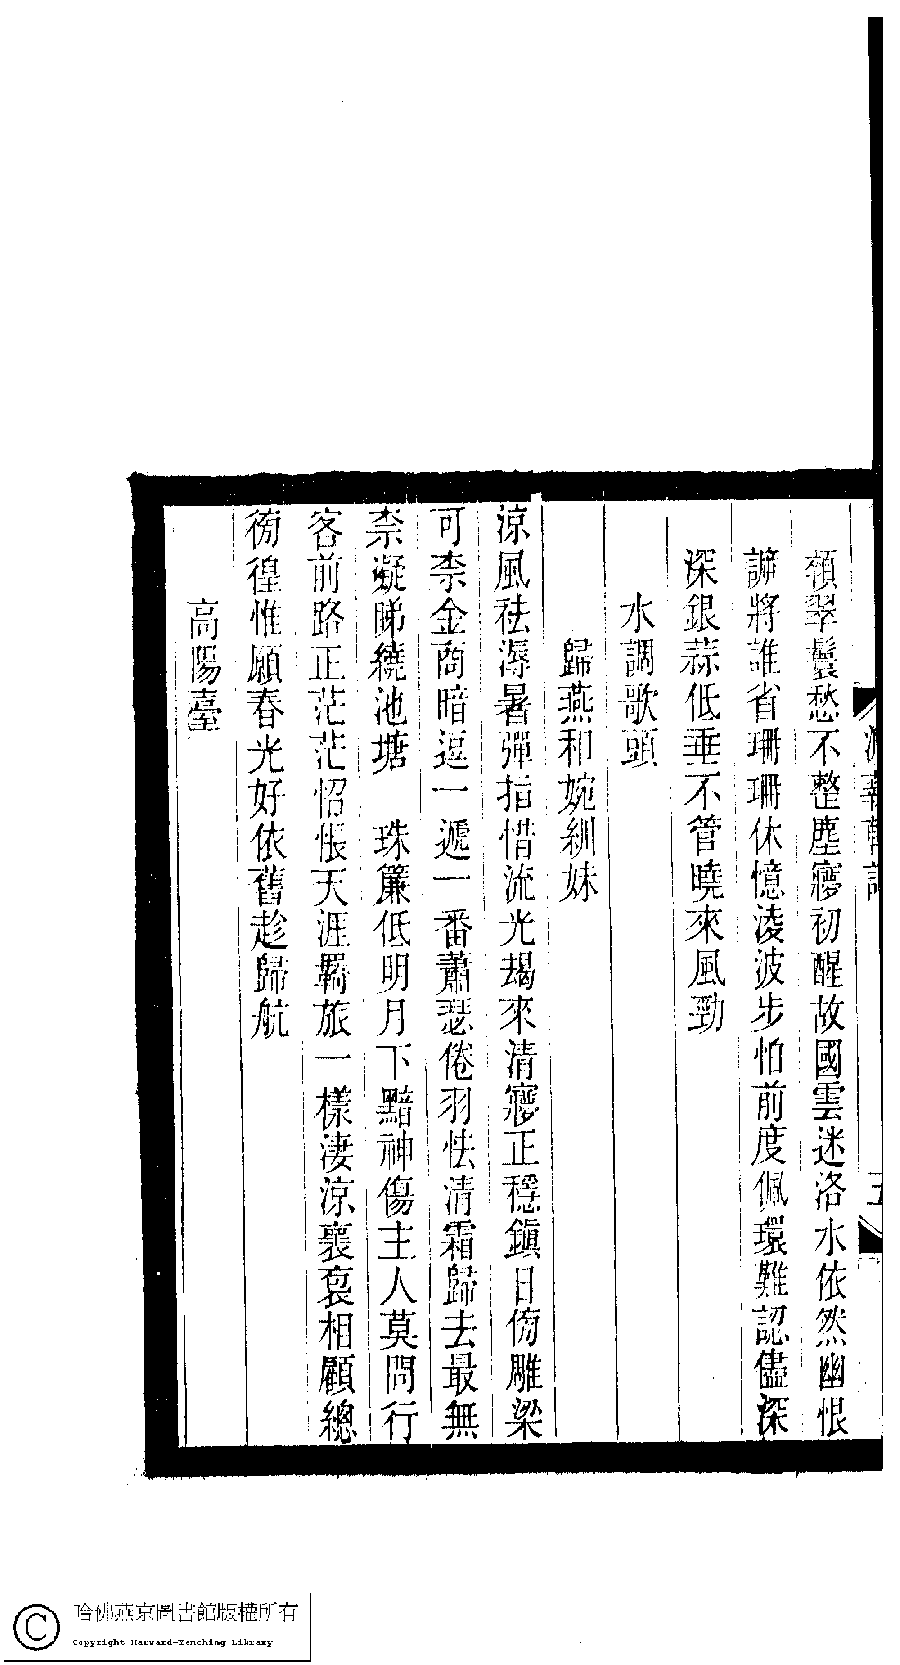 額翠鬟愁不整塵寢初醒故國雲迷洛水依然幽恨
諦將誰省珊珊休憶淩波步怕前度佩環難認儘深
深銀蒜低垂不管曉來風勁
水調歌頭
歸燕和婉紃妹
涼風祛溽暑彈指惜流光朅來清寢正穩鎮日傍雕梁
可柰金商暗逗一遞一番蕭瑟倦羽怯清霜歸去最無
柰凝睇繞池塘 珠簾低明月下黯神傷主人莫問行
客前路正茫茫怊悵天涯羇旅一樣淒涼襄裒相顧總
徬徨惟願春光好依舊趁歸航
高陽臺
哈佛燕京圖書館版權所有
Copyright Harvard-Yenching Library